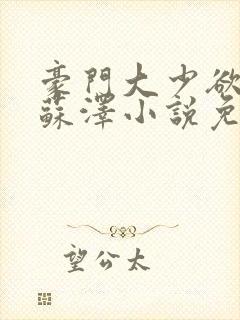 豪門大少欲
蘇澤小說免
望公太